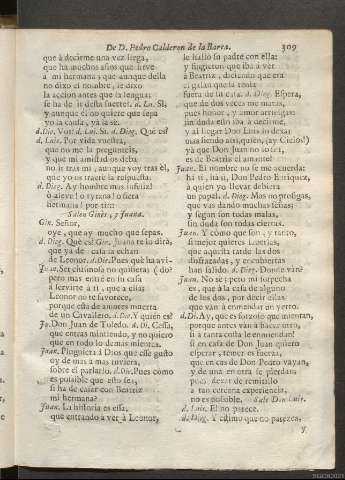 De D. Pedro Calderon de la Barca. 309
que à decirme una vez llega,
que ha muchos años que sirve
a mi hermana; que aunque della
no dixo el nombre, le dixo
la accion antes que la lengua:
se ha de ir desta suerte? d. Lu. Si,
y aunque él no quiere que sepa
yo la causa, ya la sè.
d. Die. Vos? d. Lui. Si. d. Dieg. Què es?
d. Luis. Por vida vuestra,
que no me la pregunteis,
y que mi amistad os deba
no ir tras mi, aunque voy tras él,
que yo os traerè la respuesta.
d. Dieg. Ay hombre mas infeliz!
ò aleve! ò tyrana! ò fiera
hermana! por tien
Salen Ginès, y Juana.
Gin. Señor,
oye, que ay mucho que sepas.
d. Dieg. Què es? Gin. Juana te lo dirà,
que ya de casa la echan
de Leonor. d. Die. Pues què ha avi-
Juan. Ser chismosa no quisiera; (do?
pero mas entrè en su casa
à servirte à ti, que à ella:
Leonor no te favorece,
porque està de amores muerta
de un Cavallero. d. Die. Y quièn es?
Ju. Don Juan de Toledo. d. Di. Cessa,
que entras mintiendo, y no quiero
que en todo lo demàs mientas.
Juan. Pluguiera à Dios que esse gusto
oy de mas à mas tuviera,
sobre el parlarlo. d. Die. Pues como
es possible que esso sea,
si ha de casar con Beatriz
mi hermana?
Juan. La historia es essa,
que entrando à ver à Leonor,
le hallò su padre con ella:
y fingieron que iba à ver
à Beatriz, diciendo que era
el galan que la tenia
fuera de tu casa. d. Dieg. Espera,
que de dos veces me matas,
pues honor, y amor atriesgas:
sin duda esso iba à decirme,
y al llegar Don Luis lo dexar
mas siendo assi, quièn, (ay Cielos!)
yà que Don Juan no lo sea,
es de Beatriz el amante?
Juan. El nombre no se me acuerda:
hà si, hà si, Don Pedro Enriquez,
à quien yo llevar debiera
un papel. d. Dieg. Mas no prosigas,
que vàs dando muchas señas;
y segun son todas malas,
sin duda son todas ciertas.
Juan. Y como que son, y tanto,
si mejor quieres saberlas,
que aquesta tarde las dos
disfrazadas, y encubiertas
han salido. d. Dieg. Donde vàn?
Juan. No sè; pero mi sospecha
es, que à la casa de alguno
de los dos, por decir ellas
que vàn à enmendar un yerro.
d. Di. Ay, que es forzoso que mientan,
porque antes vàn à hacer otro,
si à tanta costa le enmiendan!
si en casa de Don Juan quiero
esperar, temer es fuerza,
que en cas de Don Pedro vayan,
y de una en otra se pierdan
pues dexar de remitillo
à tan cercana experiencia,
no es possible. Sale Don Luis.
d. Luis. El no parece.
d. Dieg. Y estimo que no parezca,
Y